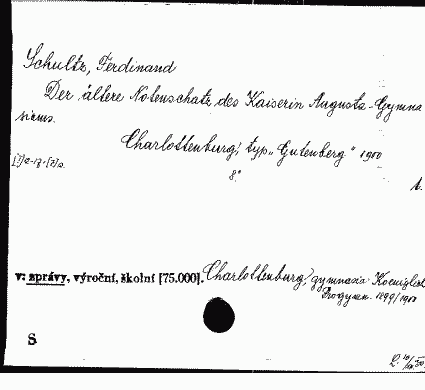 Schultz, Ferdinand
Der ältere Notenschatz des Kaiserin Augusta-Gymna
siums.
Charlottenburg, typ. „Gutenberg" 1900
8°
t.
v: správy, výroční, školní [75.000]. Charlottenburg, gymnasia Koenigliches
Progymn. 1899/1900
S